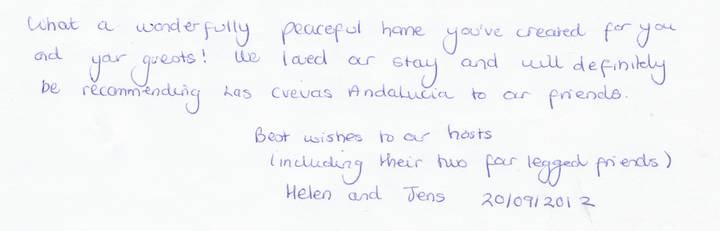 What a wonderfully peaceful home you've created for you
and your guests! We loved our stay and will definitely
be recommending Las Cuevas Andalucia to our friends.
Best wishes to our hosts
(including their two four legged friends)
Helen and Jens 20/09/2012